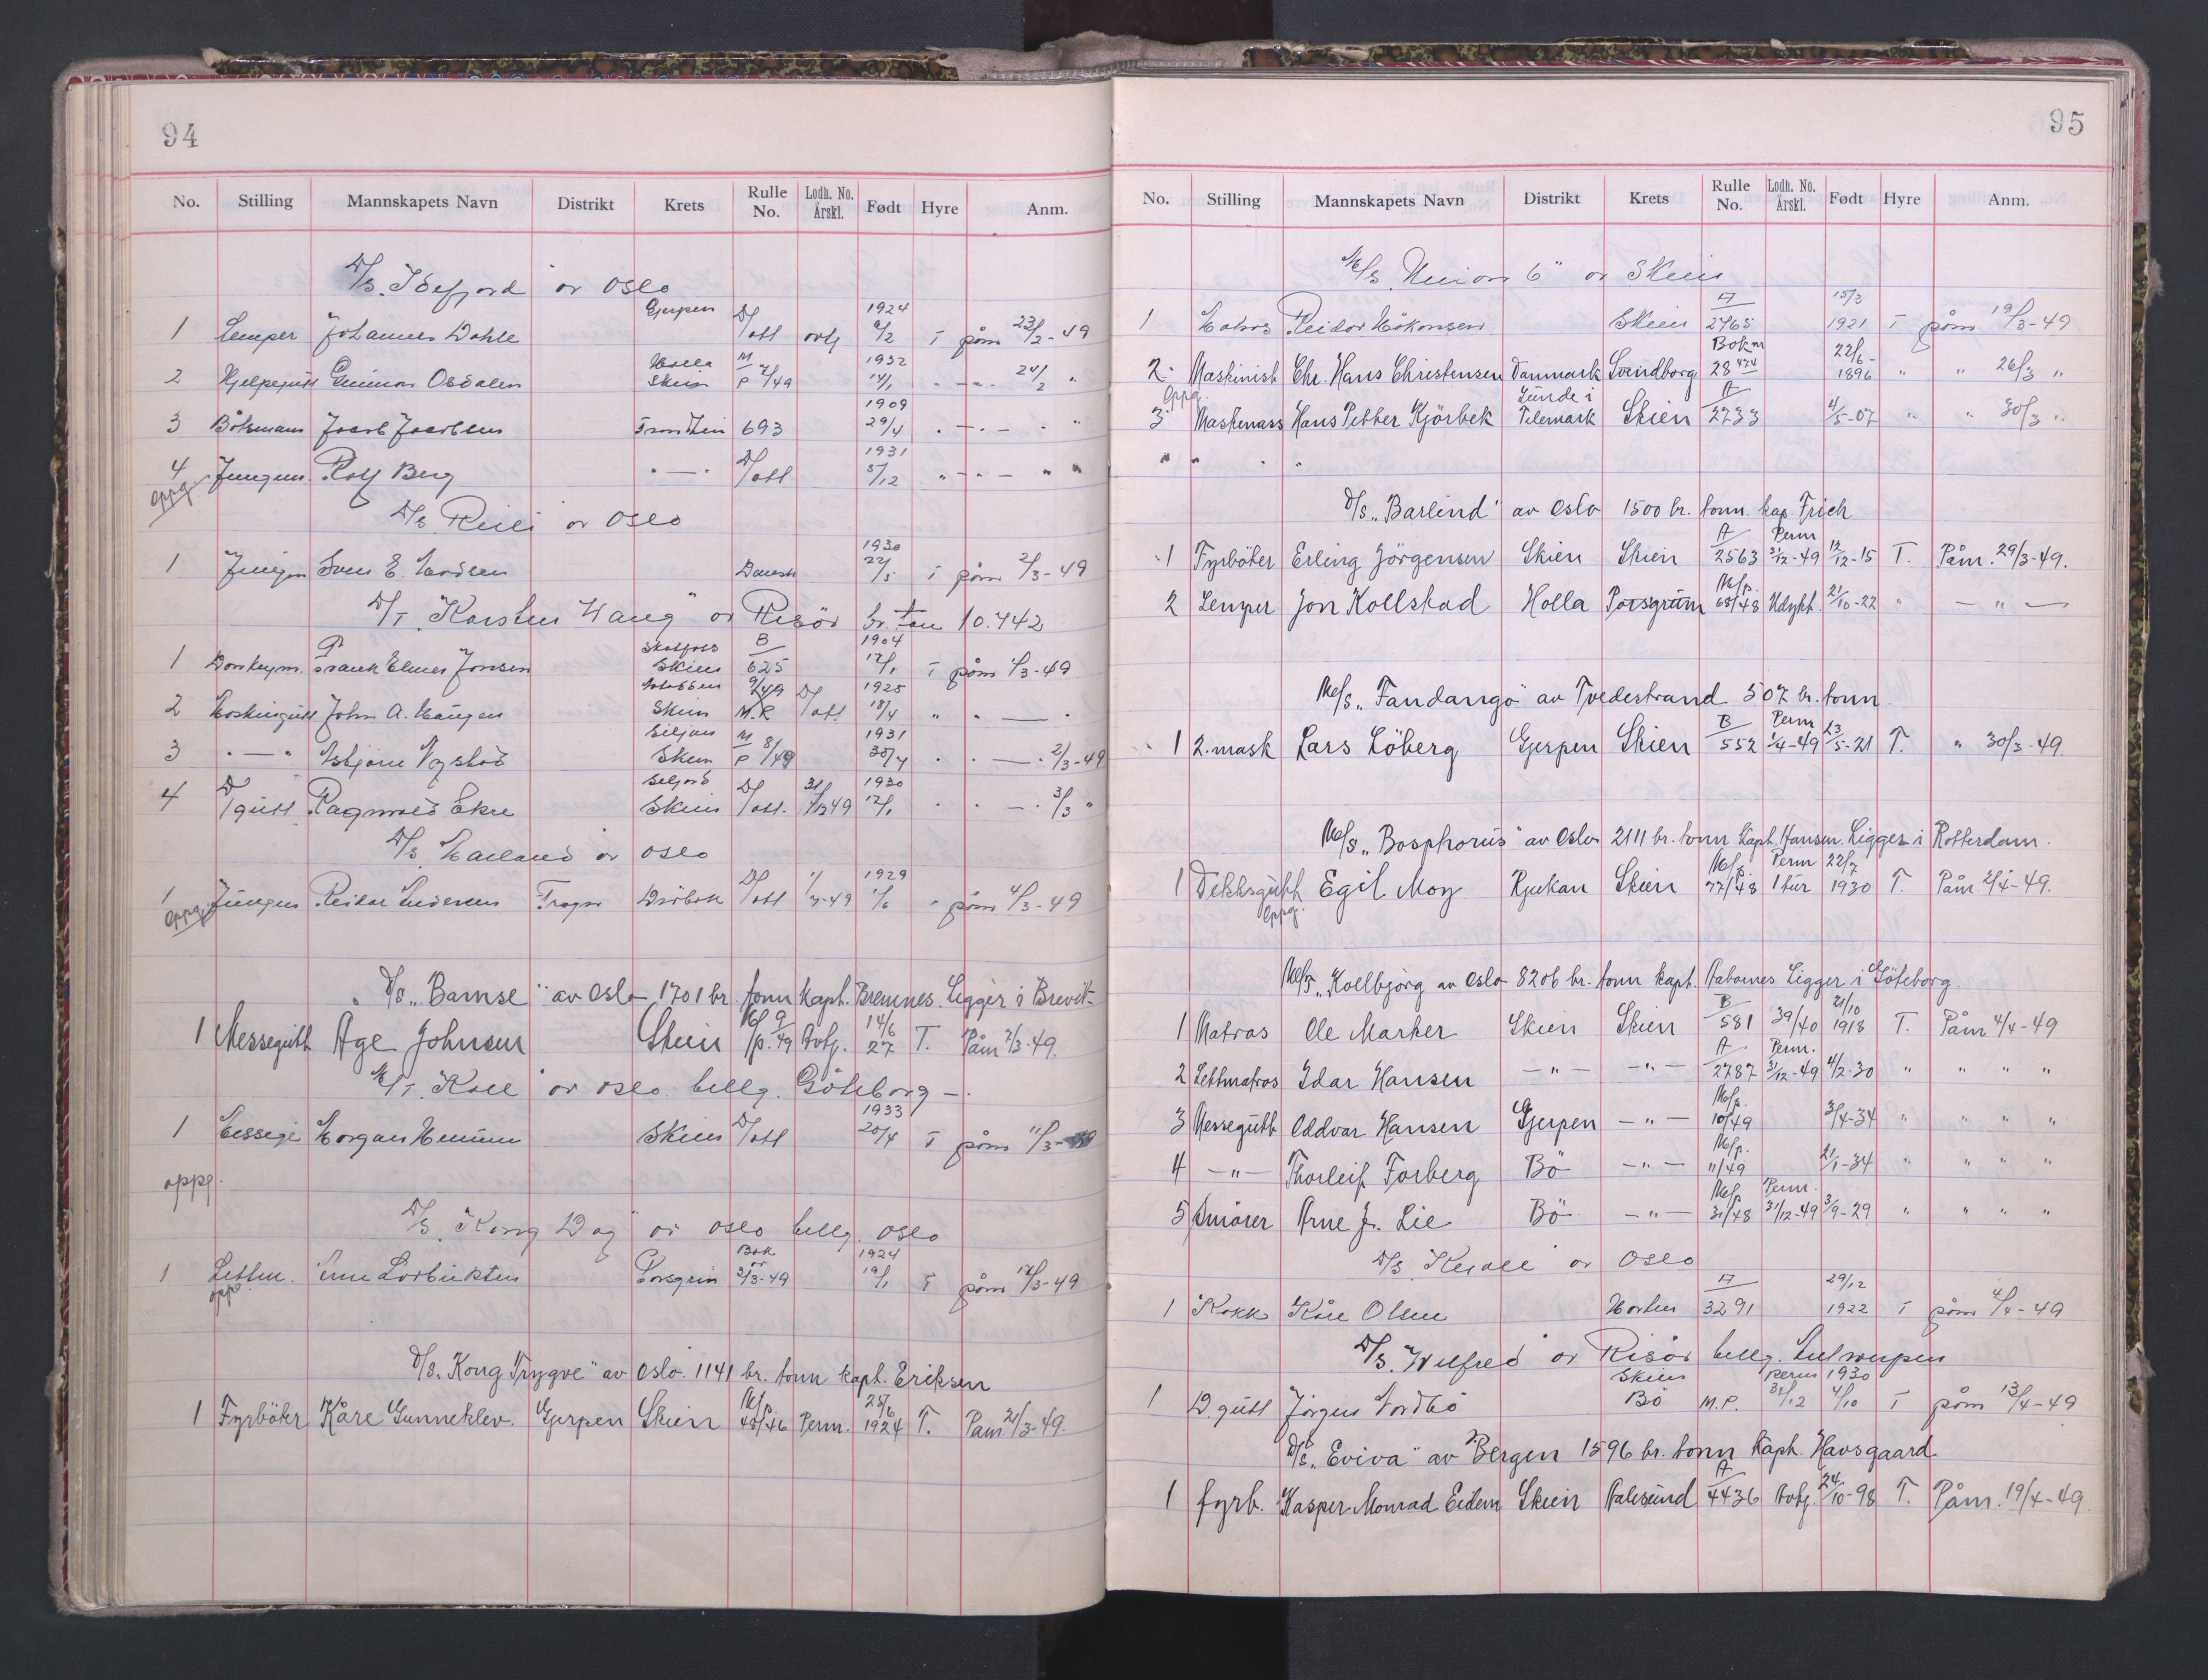 94
No. Stilling Mannskapets Navn Distrikt Krets Rulle No. Lodh. No. Årskl. Født Hyre Anm.
D/S. "Idefjord" av Oslo
1 Lemper Johannes Dahle Gjerpen D/att avtj 1924 9/2 T påm 23/2-49
2 Hjelpegutt Gunnar Osdalen Holla Skien M P 7/49 1932 14/1 " — " 24/2 "
3 Båtsmann Jacob Jacobsen Trondheim 693 1909 29/4 " — " — " "
4 Jungm. Rolf Berg " — " D/att 1931 5/12 " — " — " "
oppg
D/S av Oslo
1 Jungm Sven E. Dansk 1930 22/5 T påm 2/3-49
D/T. "Karsten Wang" av Risör br. ton 10.742
1 Donkeym. Frank Elmer Jonsen Skotfoss Skien B 625 1904 12/1 T påm 1/3-49
2 John A. Haugen Skien 9/49 M.R D/att 1925 18/4 " " — "
3 " — " Asbjørn Nystad Siljan Skien M P 8/49 1931 30/7 " " — " 2/3-49
4 D/gutt Ragnvald Ekre Seljord Skien D/att. 31/12 49 1930 12/1 " " — " 3/3 "
D/S av Oslo
1 Jungm Reidar Andersen Drøbak D/att 1/3-49 1929 1/6 " påm 4/3-49
oppg.
D/S. "Bamse" av Oslo 1701 br. tonn Kapt. Bremnes. Ligger i Brevik-
1 Messegutt Age Johnsen Skien M/p. 9/49 Avtj. 14/6 27 T. Påm 2/3-49.
M/T. "Koll" av Oslo bellg. Göteborg —.
1 Messegt Morgan Skien D/att 1933 20/4 T påm 11/3-49
oppg.
D/S. "Kong Dag" av Oslo bellg. Oslo
1 Lettm. Porsgrun Bok av 3/3-49 1924 19/1 T påm 18/3-49
opp
D/S. "Kong Trygve" av Oslo. 1141 br. tonn kapt. Eriksen
1 Fyrböter Kåre Gunneklev. Gjerpen Skien M/p. 48/46 Perm. 25/6 1924 T. Påm. 21/3-49.
95
No. Stilling Mannskapets Navn Distrikt Krets Rulle No. Lodh. No. Årskl. Født Hyre Anm.
M/S. "Union 6" av Skien
1 Matros Reidar Håkonsen Skien A 2765 15/3 1921 T påm 19/3-49
2- Maskinist Chr. Hans Christensen Danmark Svendborg Bok nr 28474 22/6- 1896 " " 26/3 "
oppg.
3 Maskinass Hans Petter Kjörbek Lunde i Telemark Skien A 2733 4/5-07 " " 30/3 "
" " " "
D/S. "Barlind" av Oslo 1500 br. tonn. kap. Frich
1 Fyrböter Erling Jörgensen Skien Skien A 2563 Perm 31/12-49 12/12-15 T. Påm. 29/3-49.
2 Lemper Jon Kollstad Holla Porsgrunn M/p. 68/48 Udykt. 21/10-22 " — " —
M/S. "Fandango" av Tvedestrand 507 br. tonn.
1 2.mask Lars Löberg Gjerpen Skien B 552 Perm 1/4-49 23/5-21 T. " 30/3-49.
M/S. "Bosphorus" av Oslo 2111 br. tonn Kapt. Hansen. Ligger i Rotterdam.
1 Dekksgutt Egil Moy Rjukan Skien M/p. 77/48 Perm 1 tur 22/7 1930 T. Påm. 2/4-49.
oppg.
M/T. "Kollbjörg av Oslo 8206 br. tonn kapt. Ligger i Göteborg.
1 Matros Ole Marker Skien Skien B 581 39/40 21/10 1918 T. Påm 4/4-49
2 Lettmatros Idar Hansen — " — — " — A 2787 Perm. 31/12-49 4/2-30 " " " "
3 Messegutt Oddvar Hansen Gjerpen — " — M/p. 10/49 3/4-34 " " " "
4 — " — Thorleif Forberg Bö — " — M/p. 11/49 21/1-34 " " " "
5 Smörer Arne J. Lie Bö — " — M/p. 31/48 Perm. 31/12-49 3/9-29 " " " "
D/S. av Oslo
1 Kokk Kåre Olsen Horten A 3291 29/12 1922 T påm 4/4-49
D/S. "Wilfred" av Risör bellg. Antwerpen
1 D.gutt Jörgen Nordbö Skien Bö M.P. perm 31/12 1930 4/10 T påm 13/4-49
D/S. "Eviva" av Bergen 1596 br. tonn Kapt. Havsgaard
1 fyrb. Kasper Monrad Eidem Skien Aalesund A 4436 Avtj. 24/10-98 T. Påm. 19/4-49.